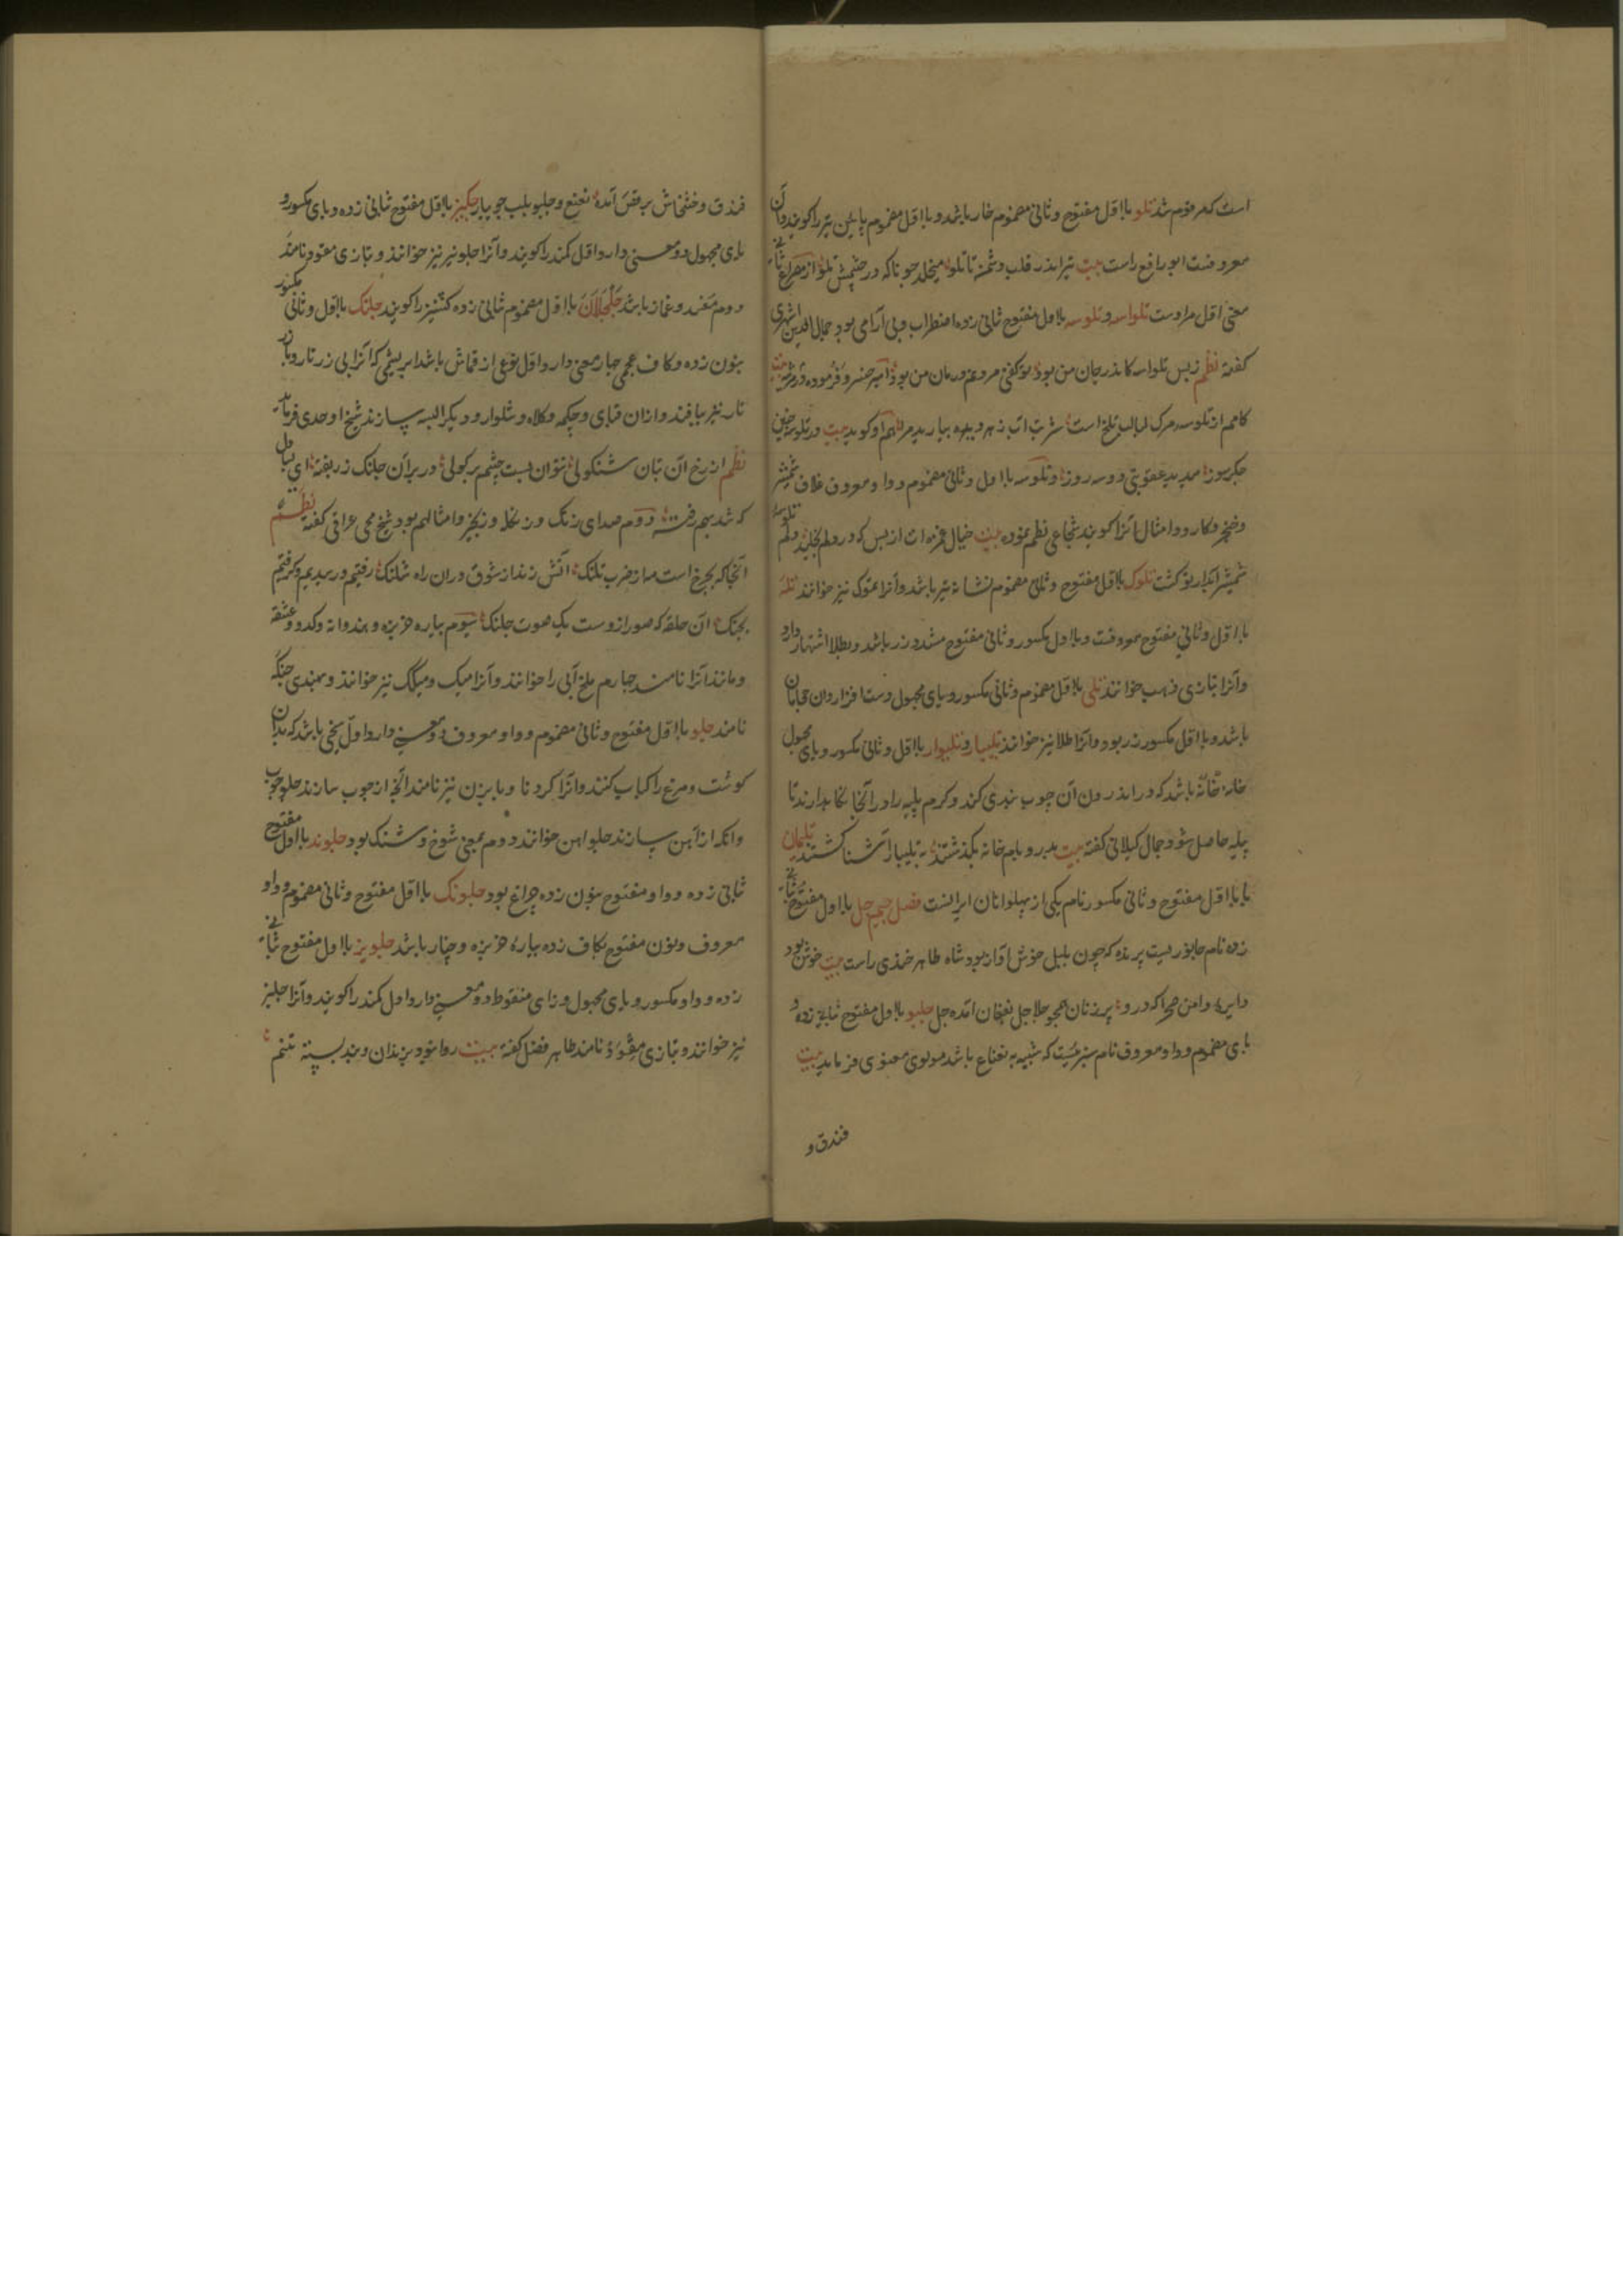 است که مرقوم شد تلو با اول مفتوح و ثانی مضموم خار باشد و با اول مضموم پایین تیر را کویند و آن
معروفست ابو رافع راست بیت تیر اندر قلب دشمن تا تلو میخلد چونانکه در چشمش تلو از مصراع ثانی
معنی اول مرادست تلواسه و تلوسه با اول مفتوح ثانی زده اضطراب و بی آرامی بود جمال الدین اشهری
کفته نظم زبس تلواسه کاندر جان من بود تو کفتی مردنم درمان من بود امیر خسرو فرموده
کامم از تلوسه مرک لبالب تلخ است شربت آب زهر دیده بیارید مرا هم او کوید بیت در تلوسه چنین
جکر سوز مدید عقوبتی دوسه روز و تلوسه با اول و ثانی مضموم و واو معروف غلاف شمشیر
و خنجر و کارد و امثال آنرا کویند شجاعی نظم نموده بیت خیال غمزه ات از بس که در دلم تلوسه
شمشیر آبدار تو کشت تلوک با اول مفتوح و ثانی مضموم نشانه تیر باشد و آنرا تموک نیز خوانند تله
با اول و ثانی مفتوح معروفست و با اول مکسور و ثانی مفتوح مشدد زر باشد و بطلا اشتهار دارد
و آنرا بتازی ذهب خوانند تلی با اول مضموم و ثانی مکسور و یای مجهول دست افزاردان حجامان
باشد و با اول مکسور زر بود و آنرا طلا نیز خوانند تلیبار و تلیوار با اول و ثانی مکسور و یای مجهول
خانه باشد که در اندرون آن چوب بندی کنند و کرم پیله را در آنجا نکاهدارند تا
پیله حاصل شود جمال کیلانی کفته بیت بدر و بام خانه بکذشتند به تلیبار آشنا کشتند تلیمان
با با اول مفتوح و ثانی مکسور نام یکی از پهلوانان ایرانست فصل جیم جل با اول مفتوح ثانی
زده نام جانوریست پرنده که چون بلبل خوش آواز بود شاه طاهر خندی راست بیت خوش بود
دایره دامن صحرا که درو پر زنان همچو جلاجل بفغان آمده جل جلبو با اول مفتوح ثانی زده و
بای مضموم و واو معروف نام سبزیست که شبیه به نعناع باشد مولوی معنوی فرماید بیت
فندق و
فندق و خشخاش برقص آمده نعنع و جلبو بلب جویبار جلبیز با اول مفتوح ثانی زده و بای مکسور و
یای مجهول دو معنی دارد اول کمند را کویند و آنرا جلویز نیز خوانند و بتازی مقود نامند
دوم مفسد و غماز باشد جلجلان با اول مضموم ثانی زده کشنیز را کویند جلنک با اول و ثانی مکسور
بنون زده و کاف عجمی چهار معنی دارد اول نوعی از قماش باشد ابریشمی که آنرا بی زر تار و بازر
تار نیز ببافند و از ان قبای و چکمه و کلاه و شلوار و دیکر البسه سازند شیخ اوحدی فرماید
نظم از رخ آن بتان شنکولی نتوان بست چشم بر کولی در بر آن جلنک زربفته ای بسا دل
که شد بهم رفته دوم صدای زنک و زنکله و زنجیر و امثالهم بود شیخ محی عراقی کفته نظم
آنجا که بچرخ است مه از ضرب تلنک آتش زند از شوق در آن راه شلنک رفتیم و رسیدیم و کرفتیم
بچنک آن حلقه که صور ازوست یک صوت جلنک سیوم بیاره خربزه و هندوانه و کدو و عشقه
و مانند آنرا نامند چهارم ملخ آبی را خوانند و آنرا میک و میکک نیز خوانند و بهندی جهنکه
نامند جلو با اول مفتوح و ثانی مضموم و واو معروف دو معنی دارد اول سیخی باشد که بدان
کوشت و مرغ را کباب کنند و آنرا کردنا و بابزن نیز نامند آنچه از چوب سازند جلو چوب
و آنکه از آهن سازند جلو آهن خوانند دوم بمعنی شوخ و شنک بود جلوند با اول مفتوح
ثانی زده و واو مفتوح بنون زده چراغ بود جلونک با اول مفتوح و ثانی مضموم و واو
معروف و نون مفتوح بکاف زده بیاره خربزه و خیار باشد جلویز با اول مفتوح ثانی
زده و واو مکسور و یای مجهول و زای منقوط دو معنی دارد اول کمند را کویند و آنرا جلبیز
نیز خوانند و بتازی مقود نامند طاهر فضل کفته بیت روا نبود بزندان و بند بسته تنم